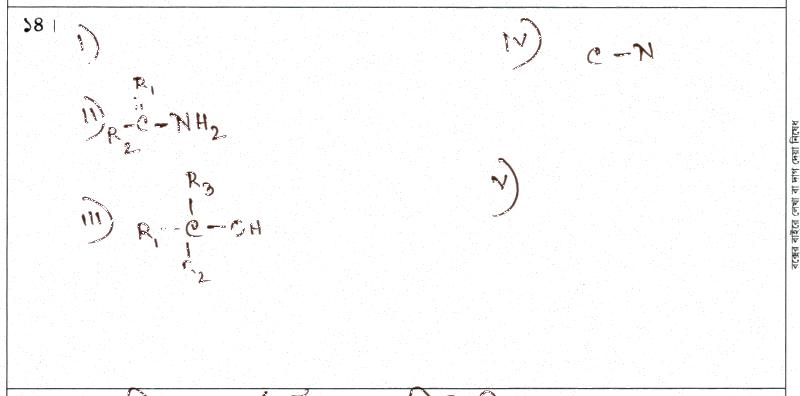 ১৪।
i)
ii) R₂-C(=R₁)-NH₂
iii) R₁-C(R₃)(R₂)-OH
iv) C-N
v)
বক্সের বাইরে লেখা বা দাগ দেয়া নিষেধ